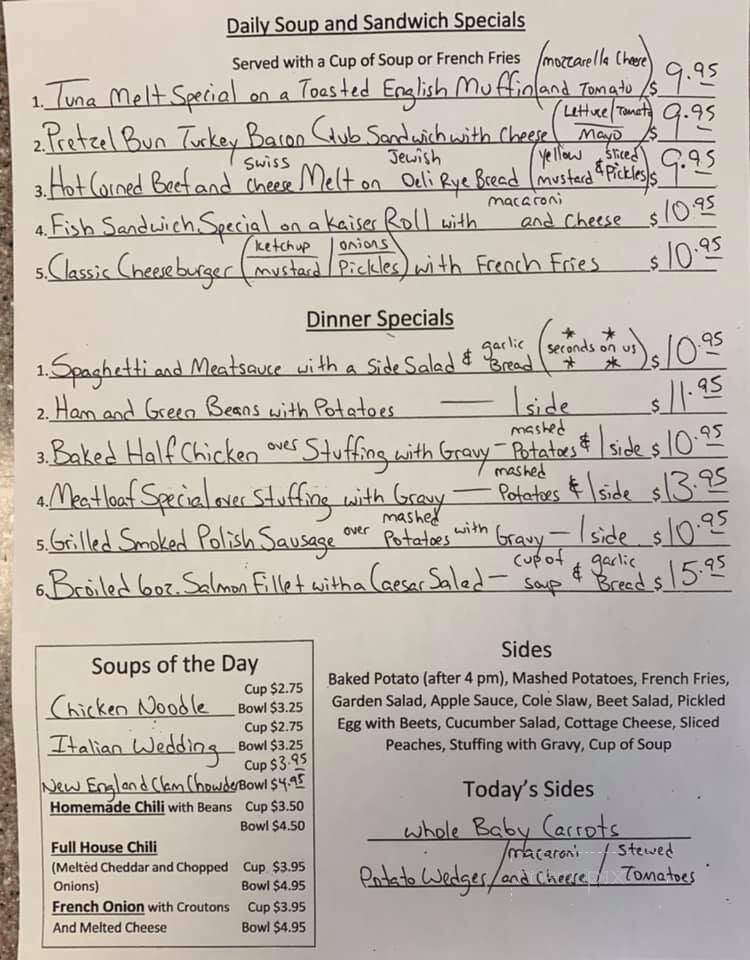 Daily Soup and Sandwich Specials
Served with a Cup of Soup or French Fries
1. Tuna Melt Special on a Toasted English Muffin (mozzarella Cheese and Tomato) $ 9.95
2. Pretzel Bun Turkey Bacon Club Sandwich with Cheese (Lettuce/Tomato Mayo) $ 9.95
3. Hot Corned Beef and Swiss Cheese Melt on Jewish Deli Rye Bread (Yellow mustard & Sliced Pickles) $ 9.95
4. Fish Sandwich Special on a Kaiser Roll with macaroni and Cheese $ 10.95
5. Classic Cheeseburger (ketchup mustard / onions Pickles) with French Fries $ 10.95
Dinner Specials
1. Spaghetti and Meatsauce with a Side Salad & garlic Bread (* * seconds on us * *) $ 10.95
2. Ham and Green Beans with Potatoes — 1 side $ 11.95
3. Baked Half Chicken over Stuffing with Gravy - mashed Potatoes & 1 side $ 10.95
4. Meatloaf Special over Stuffing with Gravy — mashed Potatoes & 1 side $ 13.95
5. Grilled Smoked Polish Sausage over mashed Potatoes with Gravy - 1 side $ 10.95
6. Broiled 6oz. Salmon Fillet with a Caesar Salad - cup of soup & garlic Bread $ 15.95
Soups of the Day
Cup $2.75
Chicken Noodle Bowl $3.25
Cup $2.75
Italian Wedding Bowl $3.25
Cup $3.95
New England Clam Chowder Bowl $4.95
Homemade Chili with Beans Cup $3.50
Bowl $4.50
Full House Chili
(Melted Cheddar and Chopped Cup $3.95
Onions) Bowl $4.95
French Onion with Croutons Cup $3.95
And Melted Cheese Bowl $4.95
Sides
Baked Potato (after 4 pm), Mashed Potatoes, French Fries,
Garden Salad, Apple Sauce, Cole Slaw, Beet Salad, Pickled
Egg with Beets, Cucumber Salad, Cottage Cheese, Sliced
Peaches, Stuffing with Gravy, Cup of Soup
Today's Sides
Whole Baby Carrots
Potato Wedges / macaroni and Cheese / Stewed Tomatoes